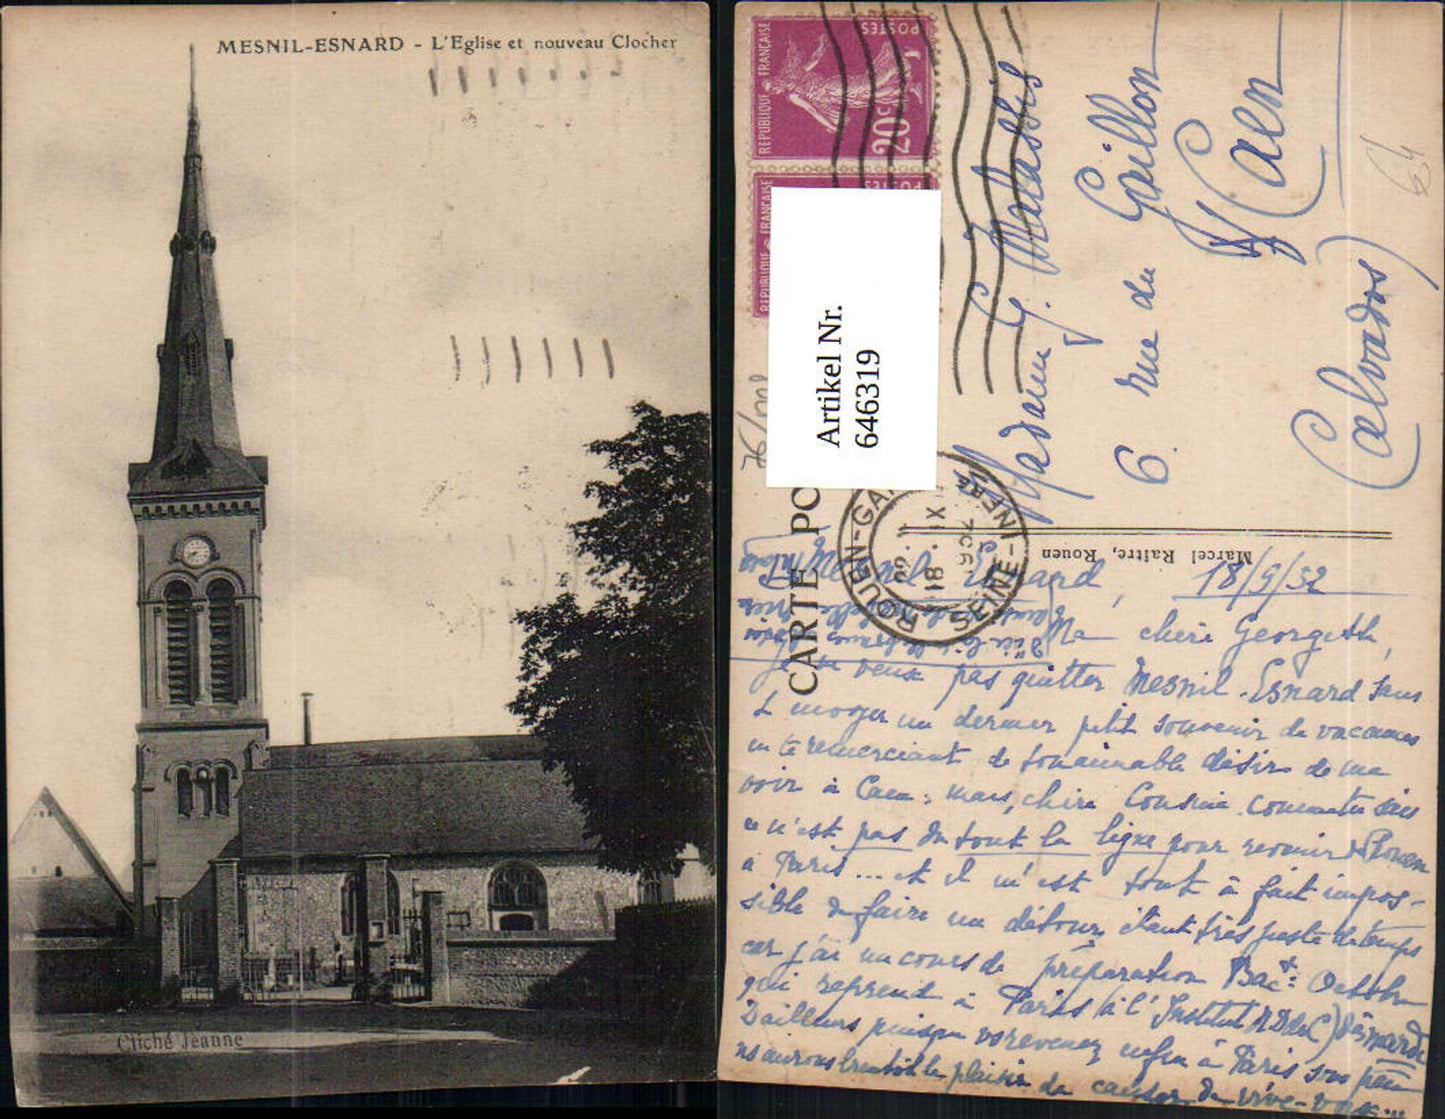 MESNIL-ESNARD - L'Eglise et nouveau Clocher
Cliché Jeanne
REPUBLIQUE FRANÇAISE
POSTES
20c
REPUBLIQUE FRANÇAISE
POSTES
Artikel Nr.
646319
64
ROUEN-GA
18 . IX
1932
SEINE INFRE
CARTE PO
Marcel Raitre, Rouen
Madame G. Malassis
6 rue du Gaillon
Caen
(Calvados)
Mesnil Esnard, 18/9/32
Ma chère Georgette,
Je ne veux pas quitter Mesnil-Esnard sans
t'envoyer un dernier petit souvenir de vacances
en te remerciant de ton aimable désir de me
voir à Caen; mais, chère Cousine comme tu sais
ce n'est pas du tout la ligne pour revenir de Rouen
à Paris... et il m'est tout à fait impos-
sible de faire un détour, étant très juste de temps
car j'ai un cours de préparation Bact. Octobre
qui reprend à Paris (à l'Institut N.D. de C) dès mardi
D'ailleurs puisque vs revenez enfin à Paris sous peu
ns aurons bientôt le plaisir de causer de vive-voix...